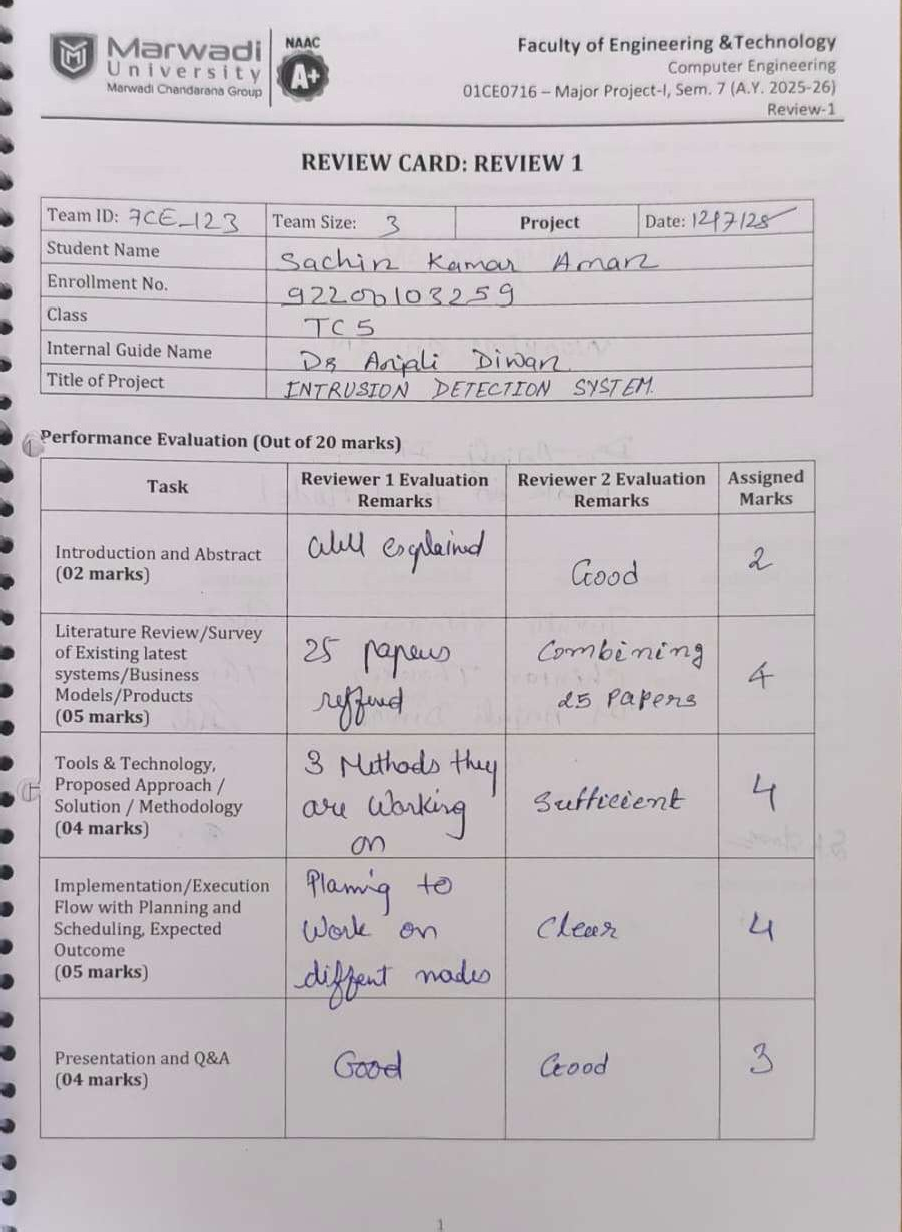 Marwadi
University
Marwadi Chandarana Group
NAAC
A+
Faculty of Engineering &Technology
Computer Engineering
01CE0716 – Major Project-I, Sem. 7 (A.Y. 2025-26)
Review-1
REVIEW CARD: REVIEW 1
Team ID: 7CE_123 Team Size: 3 Project Date: 12/7/25
Student Name Sachin Kumar Aman
Enrollment No. 92200103259
Class TC5
Internal Guide Name Dr Anjali Diwan
Title of Project INTRUSION DETECTION SYSTEM.
Performance Evaluation (Out of 20 marks)
Task
Reviewer 1 Evaluation
Remarks
Reviewer 2 Evaluation
Remarks
Assigned
Marks
Introduction and Abstract
(02 marks)
Well explained
Good
2
Literature Review/Survey
of Existing latest
systems/Business
Models/Products
(05 marks)
25 papers
reffered
Combining
25 Papers
4
Tools & Technology,
Proposed Approach /
Solution / Methodology
(04 marks)
3 Methods they
are Working
on
Sufficient
4
Implementation/Execution
Flow with Planning and
Scheduling, Expected
Outcome
(05 marks)
Planning to
Work on
diffent nodes
Clear
4
Presentation and Q&A
(04 marks)
Good
Good
3
1